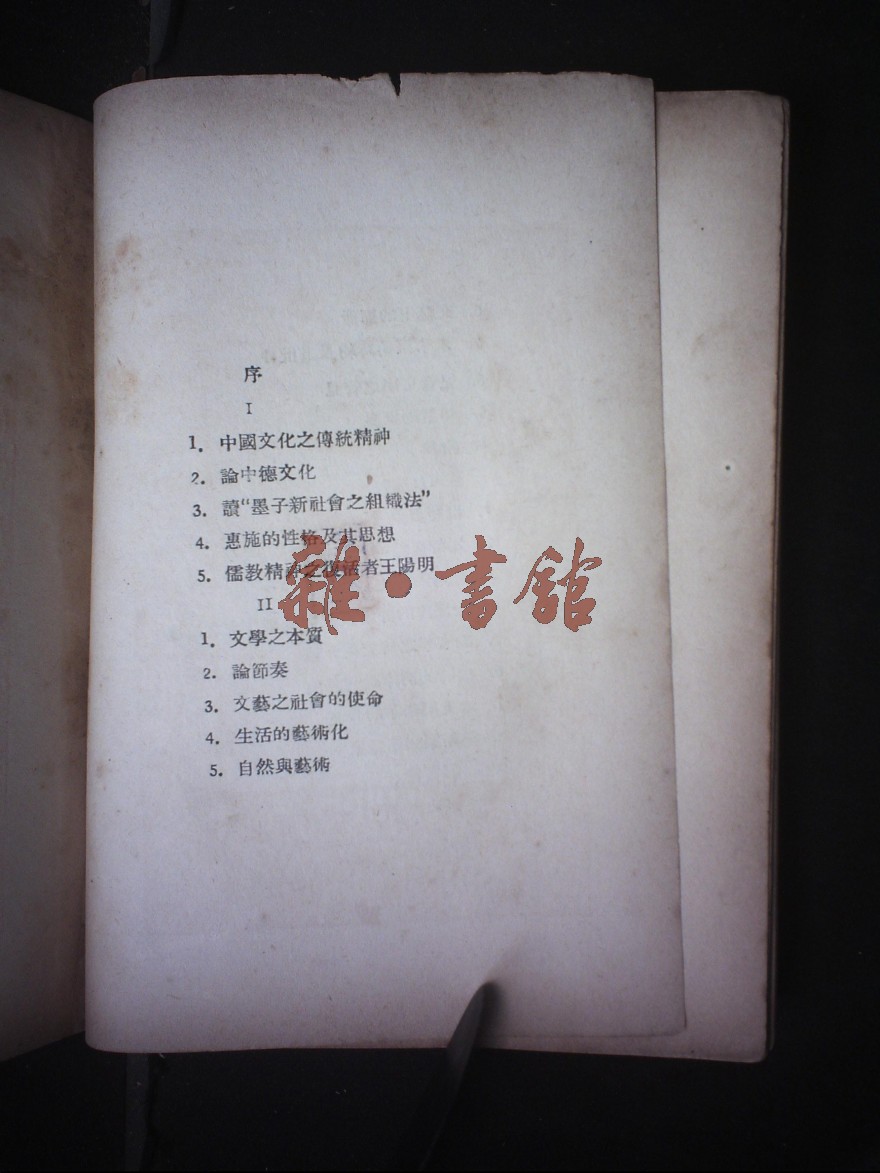 序
I
1. 中國文化之傳統精神
2. 論中德文化
3. 讀“墨子新社會之組織法”
4. 惠施的性格及其思想
5. 儒教精神之復活者王陽明
雜·書館
II
1. 文學之本質
2. 論節奏
3. 文藝之社會的使命
4. 生活的藝術化
5. 自然與藝術